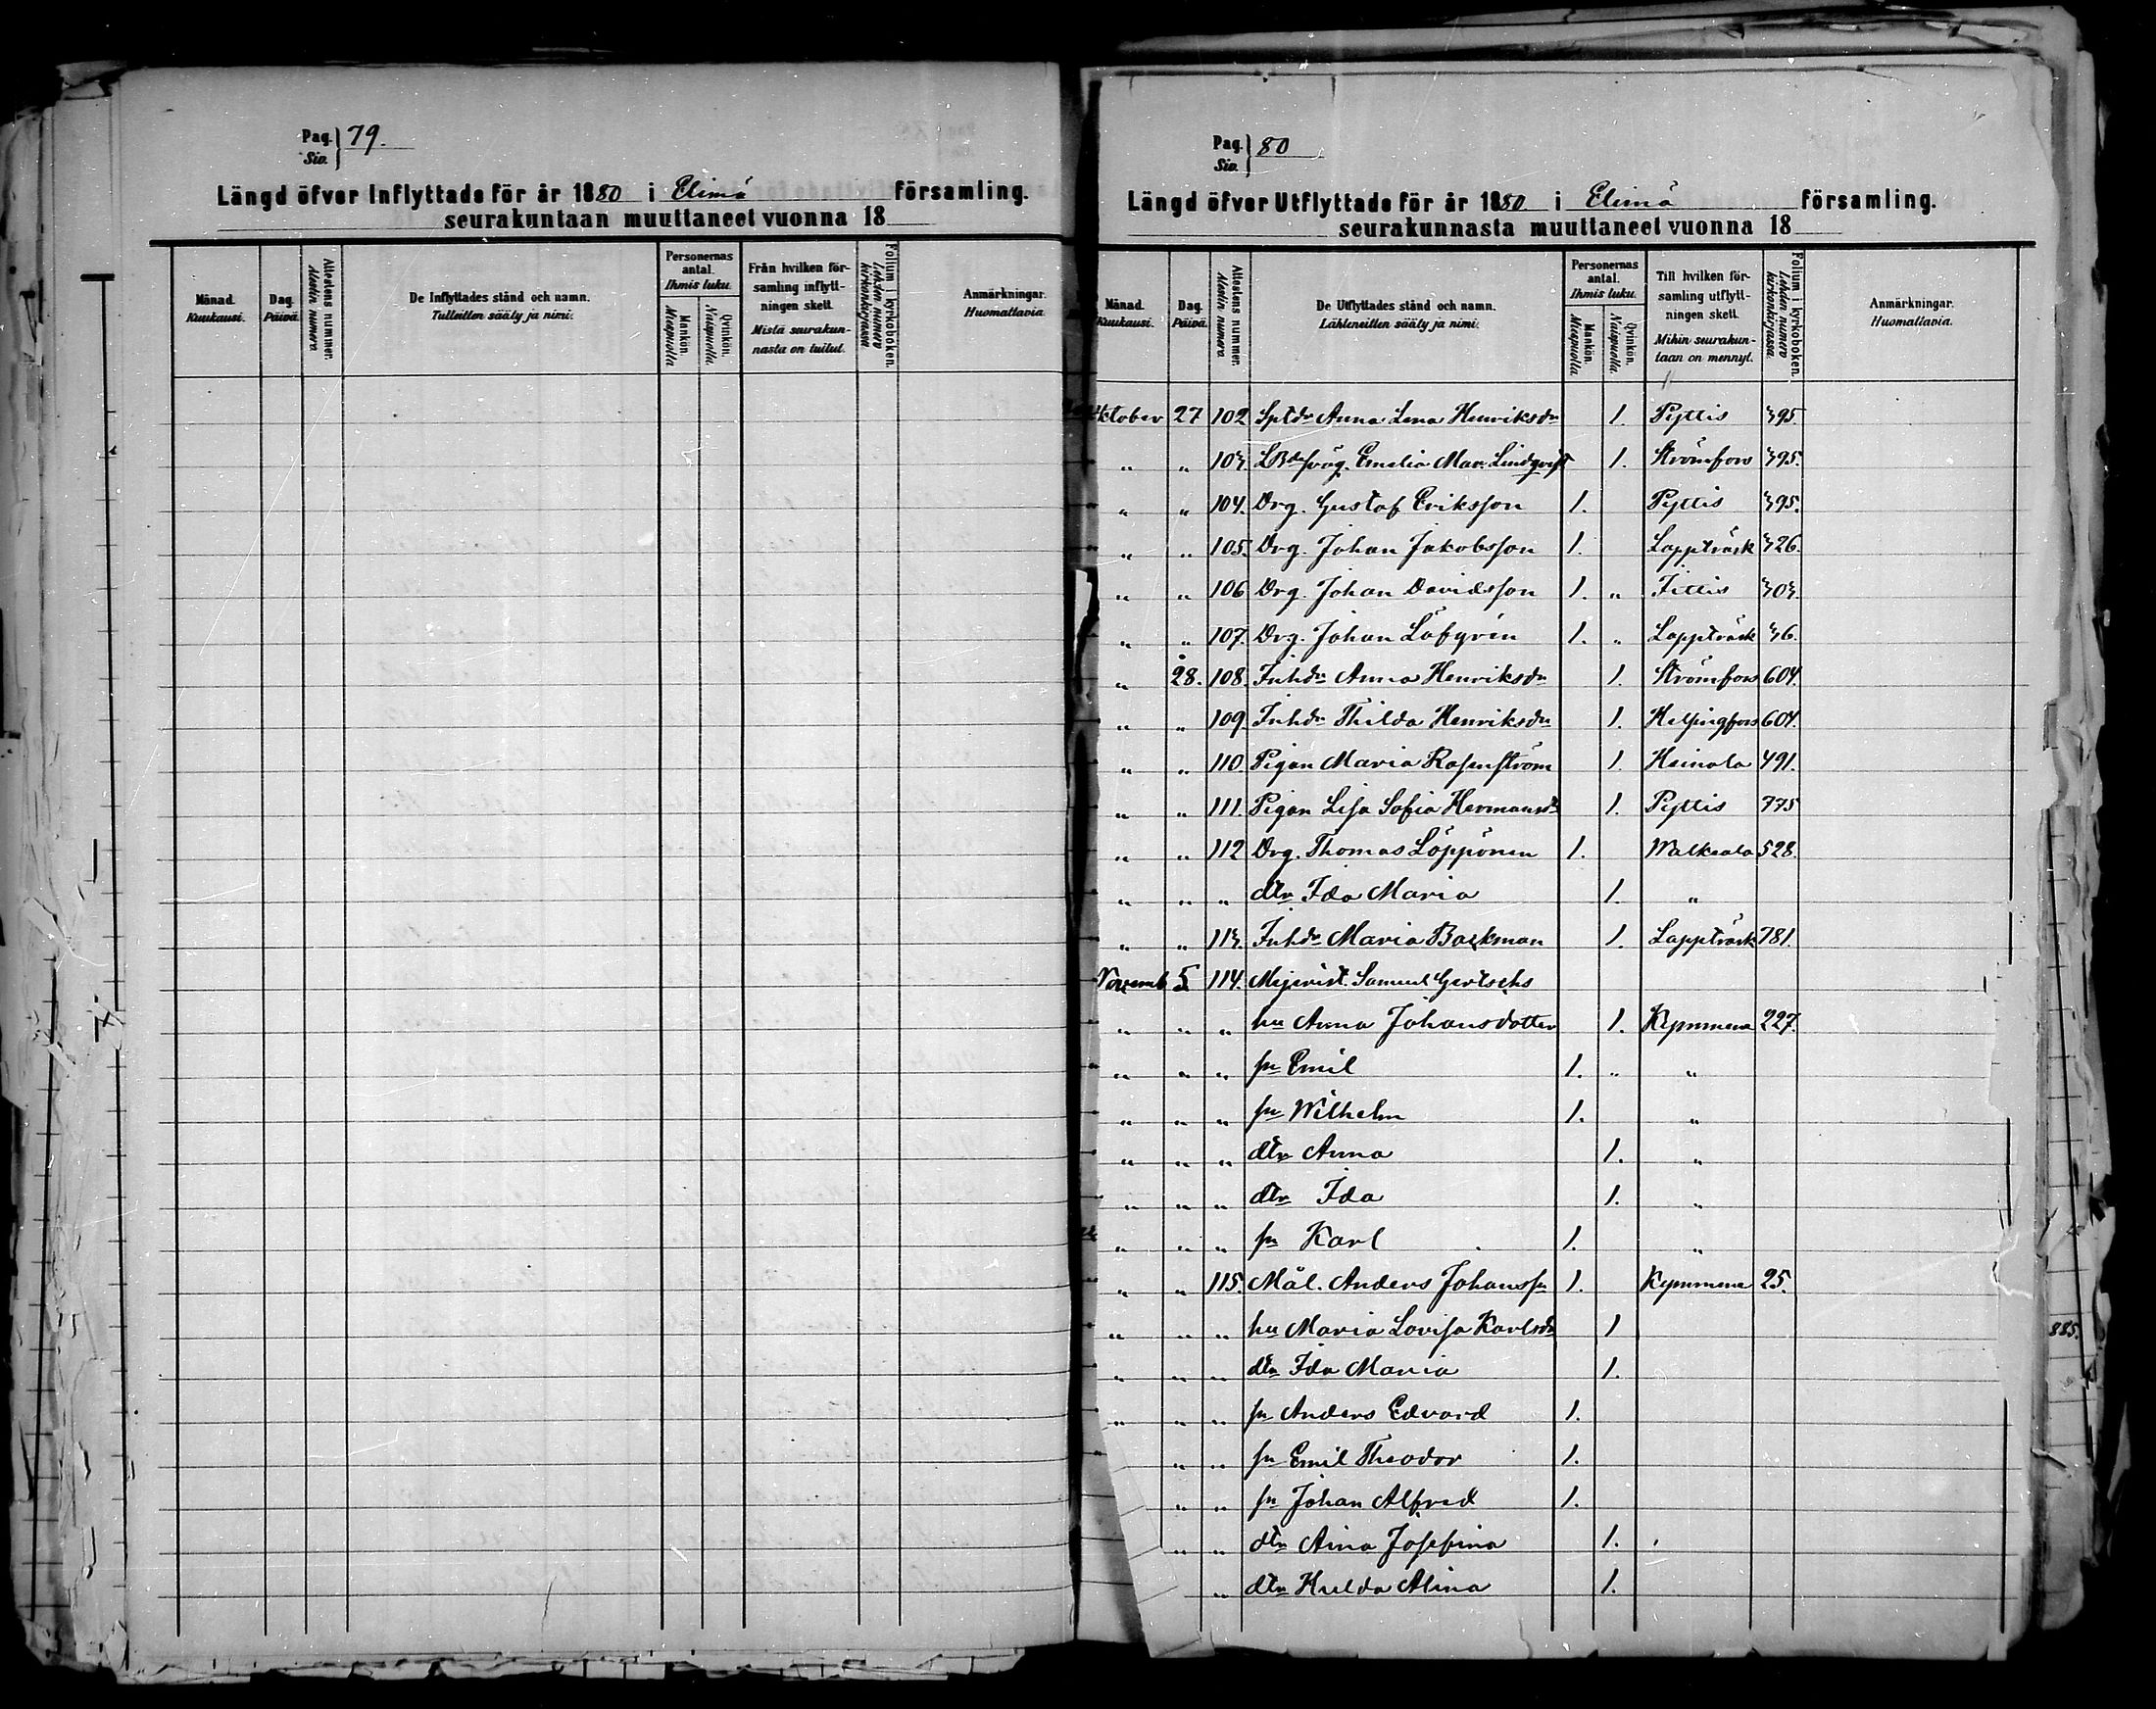 Pag. Siv. } 79.
Längd öfver Inflyttade för år 1880 i Elimä församling.
seurakuntaan muuttaneet vuonna 18
Månad. Kuukausi. | Dag. Päivä. | Attestens nummer. Alestin numero. | De Inflyttades stånd och namn. Tulleitten sääty ja nimi. | Personernas antal. Ihmis luku. Mankön. Miespuolia. Qvinkön. Naispuolia. | Från hvilken församling inflyttningen skett. Mistä seurakunnasta on tullut. | Folium i kyrkoboken. Lehden numero kirkonkirjassa. | Anmärkningar. Huomattavia.
Pag. Siv. } 80
Längd öfver Utflyttade för år 1880 i Elimä församling.
seurakunnasta muuttaneet vuonna 18
Månad. Kuukausi. | Dag. Päivä. | Attestens nummer. Alestin numero. | De Utflyttades stånd och namn. Lähteneitten sääty ja nimi. | Personernas antal. Ihmis luku. Mankön. Miespuolia. Qvinkön. Naispuolia. | Till hvilken församling utflyttningen skett. Mihin seurakuntaan on mennyt. | Folium i kyrkoboken. Lehden numero kirkonkirjassa. | Anmärkningar. Huomattavia.
ktober 27 102 Sptdr Anna Lena Henriksdr 1. Pyttis 395.
" " 103. Emelia Mar. Lindqvist 1. Strömfors 395.
" " 104. Drg. Gustaf Eriksson 1. Pyttis 395.
" " 105. Drg. Johan Jakobsson 1. Lappträsk 326.
" " 106 Drg. Johan Davidsson 1. " Jittis 303.
" " 107. Drg. Johan Löfgrén 1. " Lappträsk 36.
" 28. 108. Inhdr Anna Henriksdr 1. Strömfors 604.
" " 109. Inhdr Thilda Henriksdr 1. Helsingfors 604.
" " 110. Pigan Maria Rosenström 1. Heinola 491.
" " 111. Pigan Lisa Sofia Hermansdr 1. Pyttis 775
" " 112 Drg. Thomas Löppönen 1. Walkeala 528.
" " " dtr Ida Maria 1. "
" " 113. Inhdr Maria Backman 1. Lappträsk 781.
Novemb 5 114. Mejerist. Samuel Gertschs
" " " hu Anna Johansdotter 1. Kymmene 227.
" " " sn Emil 1. " "
" " " sn Wilhelm 1. "
" " " dtr Anna 1. "
" " " dtr Ida 1. "
" " " sn Karl 1. "
" " 115. Mål. Anders Johanssn 1. Kymmene 25.
" " " hu Maria Lovisa Karlsdr 1
" " " dtr Ida Maria 1.
" " " sn Anders Edvard 1.
" " sn Emil Theodor 1.
" " sn Johan Alfred 1.
" " dtr Aina Josefina 1.
" dtr Hulda Alina 1.
885.